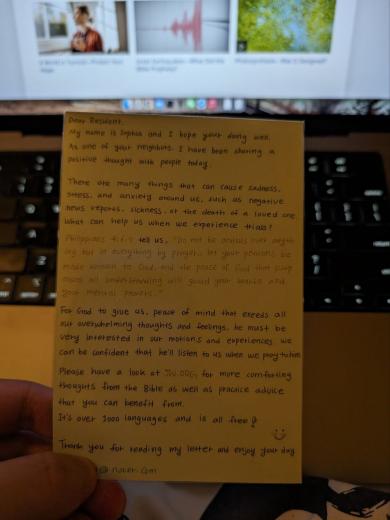 Dear Resident.
My name is Sophia and I hope your doing well.
As one of your neighbors. I have been sharing a
positive thought with people today.
There are many things that can cause sadness,
stress, and anxiety around us, such as negative
news reports, sickness, or the death of a loved one.
What can help us when we experience
Philippians 4:6,7 tell us, "Do not be anxious over anyth
ing but in everything by prayer, let your petitions be
made known to God, and the peace of God that
all understanding will guard your hearts and
your mental powers."
For God to give us, peace of mind that exceeds all
our overwhelming thoughts and feelings, he must be
very interested in our motions and experiences. We
can be confident that he'll listen to us when we pray to him
Please have a look at JW.ORG for more comforting
thoughts from the Bible as well as practice advice
that you can benefit from.
It's over 1000 languages and is all free
Thank you for reading my letter and enjoy your day
@ naver.com